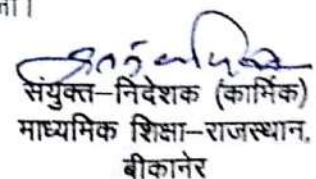 संयुक्त–निदेशक (कार्मिक)
माध्यमिक शिक्षा–राजस्थान,
बीकानेर